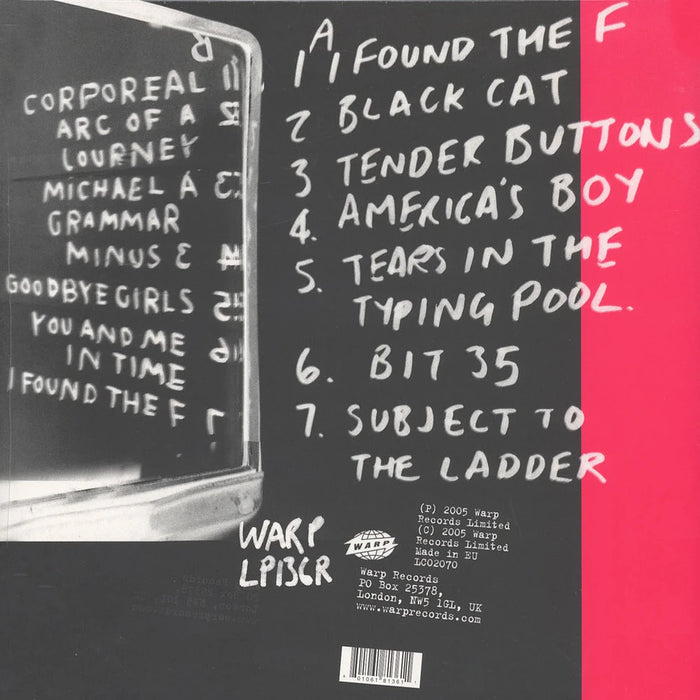 A
1 I FOUND THE F
2 BLACK CAT
3 TENDER BUTTONS
4. AMERICA'S BOY
5. TEARS IN THE
TYPING POOL.
6. BIT 35
7. SUBJECT TO
THE LADDER
B
CORPOREAL 1
ARC OF A 2
LOURNEY
MICHAEL A 3
GRAMMAR
MINUS 3 4
GOODBYE GIRLS 5
YOU AND ME 6
IN TIME
I FOUND THE F 7
WARP
LP136R
WARP
(P) 2005 Warp
Records Limited
(C) 2005 Warp
Records Limited
Made in EU
LC02070
Warp Records
PO Box 25378,
London, NW5 1GL, UK
www.warprecords.com
801061 81361